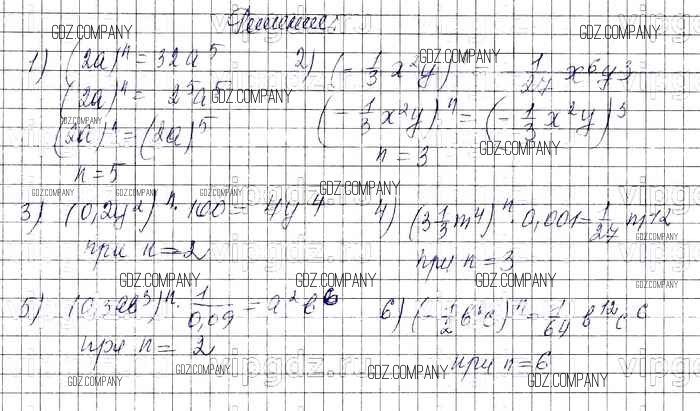 Решение:
1) (2a)ⁿ = 32a⁵
(2a)ⁿ = 2⁵a⁵
(2a)ⁿ = (2a)⁵
n = 5
2) (-1/3 x²y)ⁿ = -1/27 x⁶y³
(-1/3 x²y)ⁿ = (-1/3 x²y)³
n = 3
3) (0,2y²)ⁿ · 100 = 4y⁴
при n = 2
4) (3 1/3 m⁴)ⁿ · 0,001 = 1/27 m12
при n = 3
5) (0,3ab³)ⁿ · 1/0,09 = a²b⁶
при n = 2
6) (-1/2 b²c)ⁿ = 1/64 b¹²c⁶
при n = 6
GDZ.COMPANY
vipgdz.ru